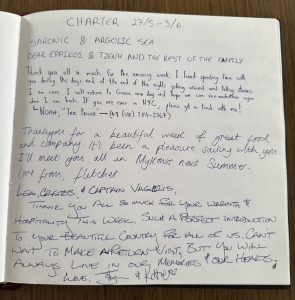 CHARTER 27/5-3/6
SARONIC & ARGOLIC SEA
DEAR EPPIKOI & TZENH AND THE REST OF THE FAMILY
Thank you all so much for the amazing week. I loved spending time with
you during the days and at the end of the nights joking around and talking
I am sure I will return to Greece one day and hope we can see each other again
when I am back. If you are ever in NYC, please get in touch with me!
NOAH, "The
Thankyou for a beautiful week of great food
and company. It's been a pleasure sailing with you
I'll meet you all in Mykonos next Summer.
Love from, fletcher
& CAPTAIN VAGELIS,
THANK YOU ALL SO MUCH FOR YOUR WARMTH &
HOSPITALITY THIS WEEK. SUCH A PERFECT INTRODUCTION
TO YOUR BEAUTIFUL COUNTRY FOR ALL OF US. CAN'T
WAIT TO MAKE A RETURN VISIT, BUT YOU WILL
ALWAYS LIVE IN OUR MEMORIES & OUR HEARTS.
LOVE,